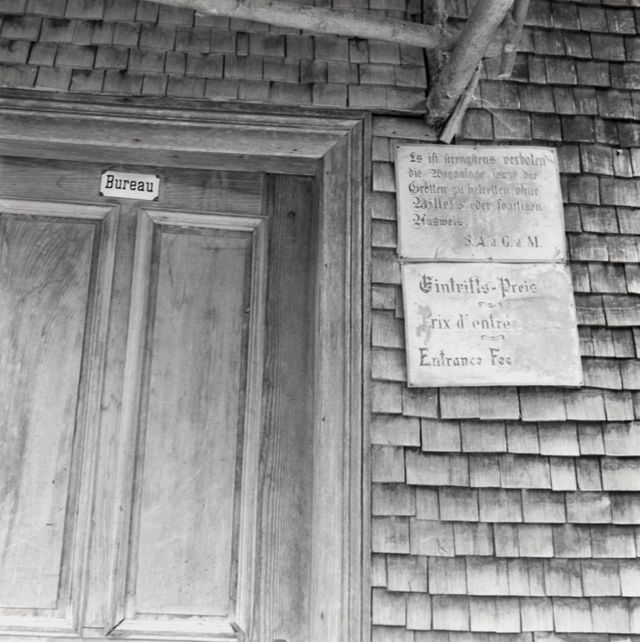 Bureau
Es ist strengstens verboten
die Weganlage sowie die
Grotten zu betreten ohne
Billets oder sonstigen
Ausweis.
S. A. d. G. d. M.
Eintritts-Preis
Prix d'entré
Entrance Fee